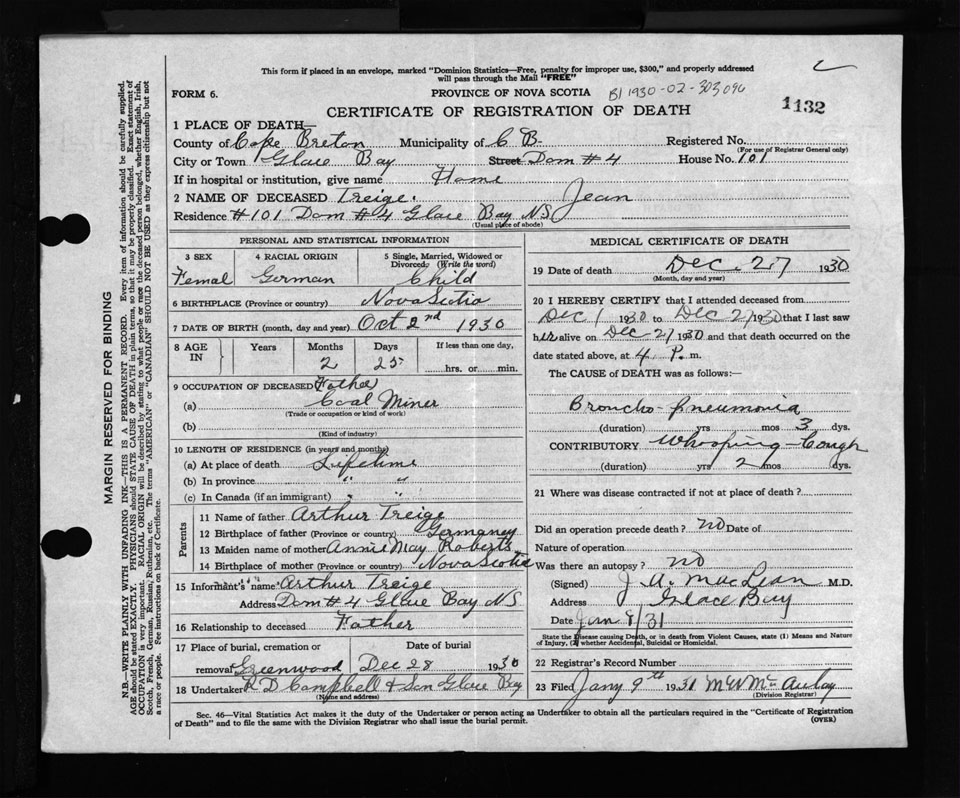 This form if placed in an envelope, marked "Dominion Statistics—Free, penalty for improper use, $300," and properly addressed
will pass through the Mail "FREE"
FORM 6.
PROVINCE OF NOVA SCOTIA
B1 1930-02-303090
1132
CERTIFICATE OF REGISTRATION OF DEATH
1 PLACE OF DEATH—
County of Cape Breton Municipality of C B Registered No.
(For use of Registrar General only)
City or Town Glace Bay Street Dom #4 House No. 101
If in hospital or institution, give name Home
2 NAME OF DECEASED Treige. Jean
Residence #101 Dom #4 Glace Bay NS
(Usual place of abode)
PERSONAL AND STATISTICAL INFORMATION
3 SEX
Femal
4 RACIAL ORIGIN
German
5 Single, Married, Widowed or
Divorced. (Write the word)
Child
6 BIRTHPLACE (Province or country) Nova Scotia
7 DATE OF BIRTH (month, day and year) Oct 2nd 1930
8 AGE IN
Years Months Days If less than one day,
2 25 hrs. or min.
9 OCCUPATION OF DECEASED Father
(a) Coal Miner
(Trade or occupation or kind of work)
(b)
(Kind of industry)
10 LENGTH OF RESIDENCE (in years and months)
(a) At place of death Lifetime
(b) In province " "
(c) In Canada (if an immigrant) " "
Parents
11 Name of father Arthur Treige
12 Birthplace of father (Province or country) Germany
13 Maiden name of mother Annie May Roberts
14 Birthplace of mother (Province or country) Nova Scotia
15 Informant's name Arthur Treige
Address Dom #4 Glace Bay NS
16 Relationship to deceased Father
17 Place of burial, cremation or Date of burial
removal Greenwood Dec 28 1930
18 Undertaker R D Campbell & Son Glace Bay
(Name and address)
MEDICAL CERTIFICATE OF DEATH
19 Date of death Dec. 27 1930
(Month, day and year)
20 I HEREBY CERTIFY that I attended deceased from
Dec 1 1930 to Dec 27 1930 that I last saw
h alive on Dec 27 1930 and that death occurred on the
date stated above, at 4 P. m.
The CAUSE of DEATH was as follows:—
Broncho-pneumonia
(duration) yrs mos 3 dys.
CONTRIBUTORY Whooping-Cough
(duration) yrs 2 mos dys.
21 Where was disease contracted if not at place of death?
Did an operation precede death? no Date of
Nature of operation
Was there an autopsy? no
(Signed) J. A. MacLean M.D.
Address Glace Bay
Date Jan 8/31
State the Disease causing Death, or in death from Violent Causes, state (1) Means and Nature
of Injury, (2) whether Accidental, Suicidal or Homicidal.
22 Registrar's Record Number
23 Filed Jany 9th 1931 McAulay
(Division Registrar)
Sec. 46—Vital Statistics Act makes it the duty of the Undertaker or person acting as Undertaker to obtain all the particulars required in the "Certificate of Registration
of Death" and to file the same with the Division Registrar who shall issue the burial permit.
(OVER)
MARGIN RESERVED FOR BINDING
N.B.—WRITE PLAINLY WITH UNFADING INK—THIS IS A PERMANENT RECORD. Every item of information should be carefully supplied.
AGE should be stated EXACTLY. PHYSICIANS should STATE CAUSE OF DEATH in plain terms, so that it may be properly classified. Exact statement of
OCCUPATION is very important. RACIAL ORIGIN will be described by stating to what people or race the deceased person belonged, whether English, Irish,
Scotch, French, German, Russian, Ruthenian, etc. The terms "AMERICAN" or "CANADIAN" SHOULD NOT BE USED as they express citizenship but not
a race or people. See instructions on back of Certificate.